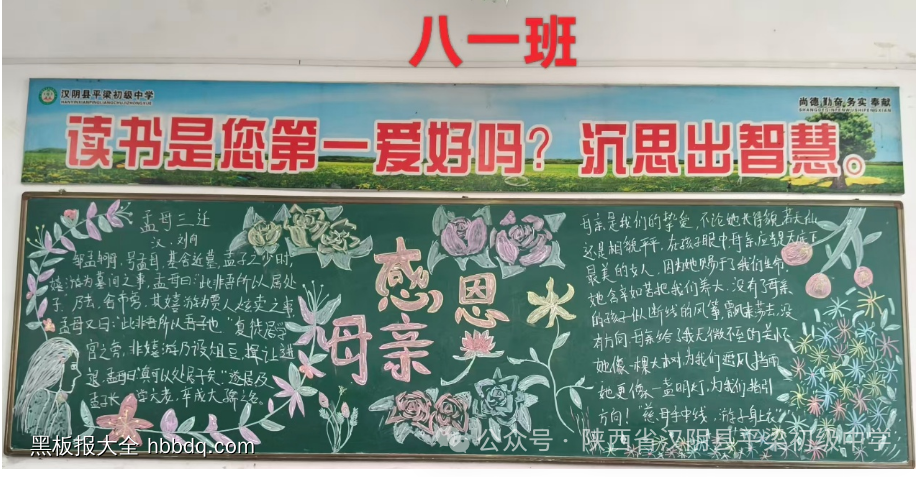 八一班
汉阴县平梁初级中学
尚德 勤奋 务实 奉献
读书是您第一爱好吗？沉思出智慧。
孟母三迁
汉·刘向
邹孟轲母，号孟母，其舍近墓，孟子之少时，
嬉游为墓间之事，孟母曰：“此非吾所以居处
子。”乃去，舍市旁，其嬉游为贾人炫卖之事
孟母又曰：“此非吾所以吾子也。”复徙居学
宫之旁，其嬉游乃设俎豆，揖让进
退，孟母曰：“真可以处居子矣。”遂居及
孟子长，学六艺，卒成大儒之名。
感恩
母亲
母亲是我们的挚爱，不论她长得貌若天仙
还是相貌平平，在孩子眼中母亲应都是天底下
最美的女人，因为她赐予了我们生命，
她含辛如苦把我们养大，没有了母亲
的孩子似断线的风筝，飘来荡去，没
有方向，母亲给了我无微不至的关怀
她像一棵大树，为我们遮风挡雨
她更像一盏明灯，为我们指引
方向！“慈母手中线，游子身上衣”
黑板报大全 hbbdq.com
公众号·陕西省汉阴县平梁初级中学